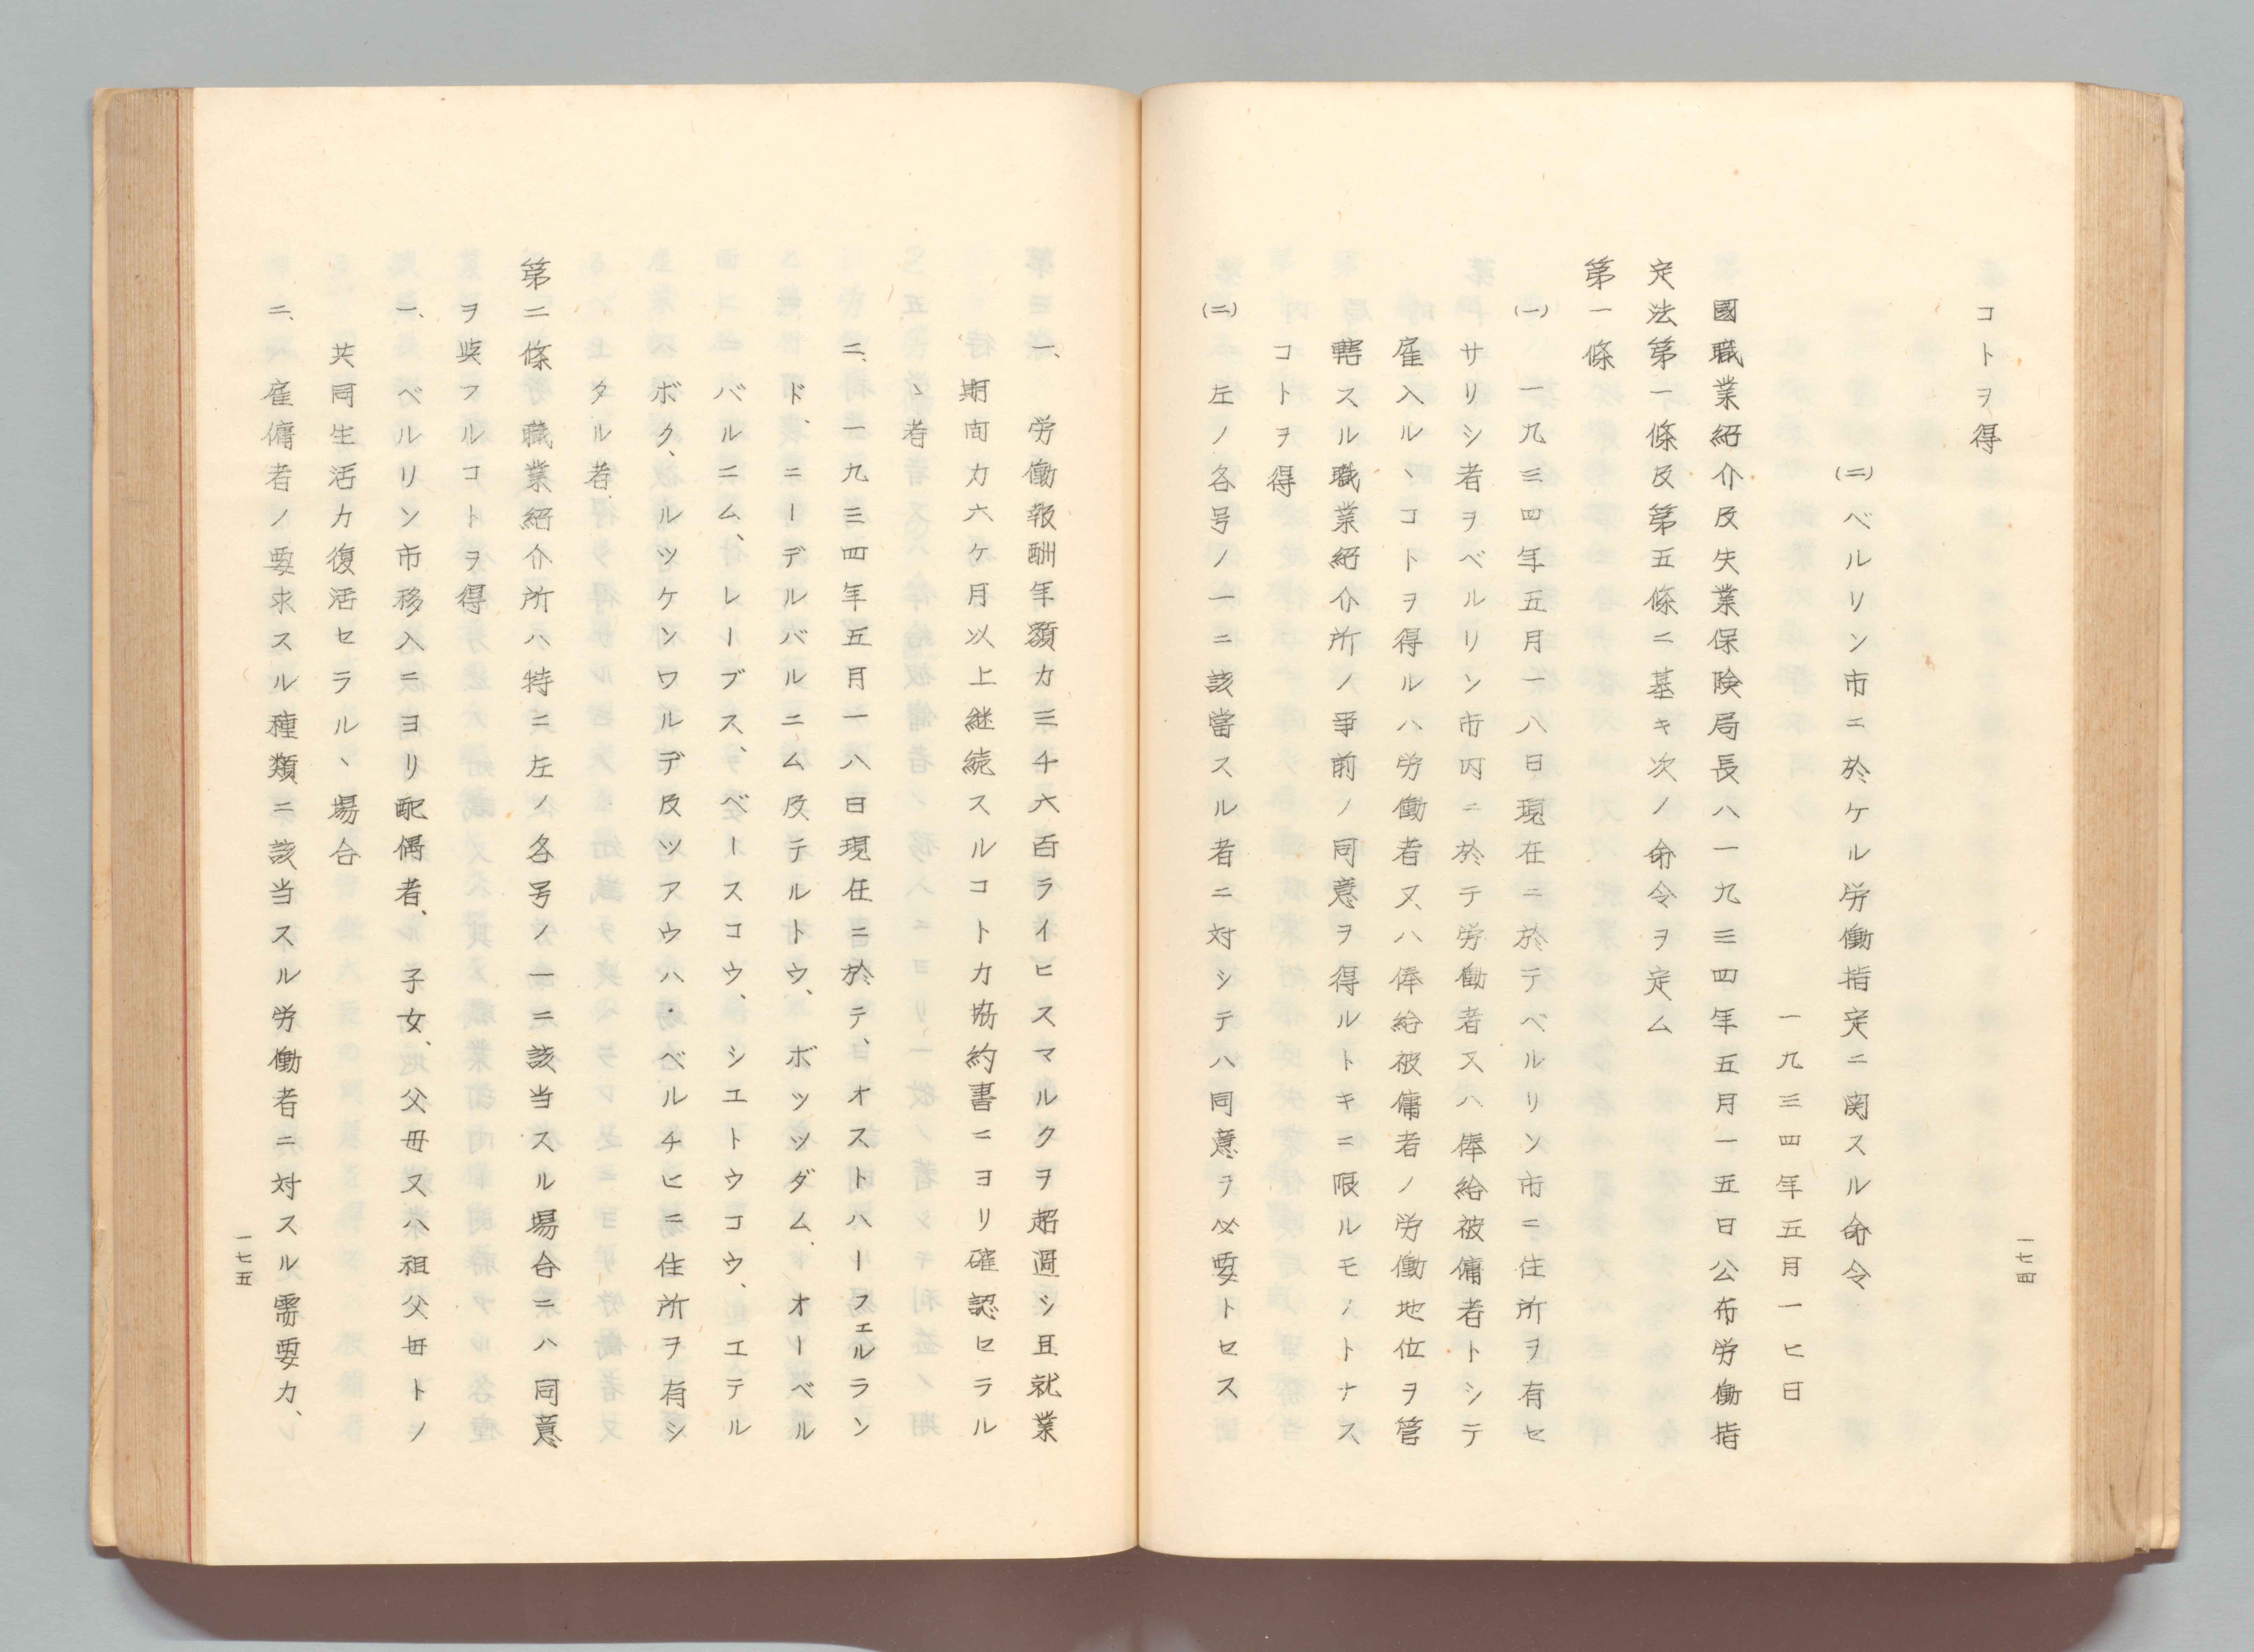 コトヲ得
(二)ベルリン市ニ於ケル労働指定ニ関スル命令
一九三四年五月一七日
國職業紹介及失業保険局長ハ一九三四年五月一五日公布労働指
定法第一條及第五條ニ基キ次ノ命令ヲ定ム
第一條
(一)一九三四年五月一八日現在ニ於テベルリン市ニ住所ヲ有セ
サリシ者ヲベルリン市内ニ於テ労働者又ハ俸給被傭者トシテ
雇入ルヽコトヲ得ルハ労働者又ハ俸給被傭者ノ労働地位ヲ管
轄スル職業紹介所ノ事前ノ同意ヲ得ルトキニ限ルモノトナス
コトヲ得
(二)左ノ各号ノ一ニ該當スル者ニ対シテハ同意ヲ必要トセス
一七四
一、労働報酬年額カ三千六百ライヒスマルクヲ超過シ且就業
期間カ六ケ月以上継続スルコトカ協約書ニヨリ確認セラル
ヽ者
二、一九三四年五月一八日現在ニ於テ、オストハーフエルラン
ド、ニーデルバルニム及テルトウ、ボッツダム、オーベル
バルニム、レーブス、ベースコウ、シエトウコウ、エテル
ボク、ルツケンワルデ及ツアウハ・ベルチヒニ住所ヲ有シ
タル者
第二條職業紹介所ハ特ニ左ノ各号ノ一ニ該当スル場合ニハ同意
ヲ與フルコトヲ得
一、ベルリン市移入ニヨリ配偶者、子女、父母又ハ祖父母トノ
共同生活カ復活セラルヽ場合
二、雇傭者ノ要求スル種類ニ該当スル労働者ニ対スル需要カ、
一七五